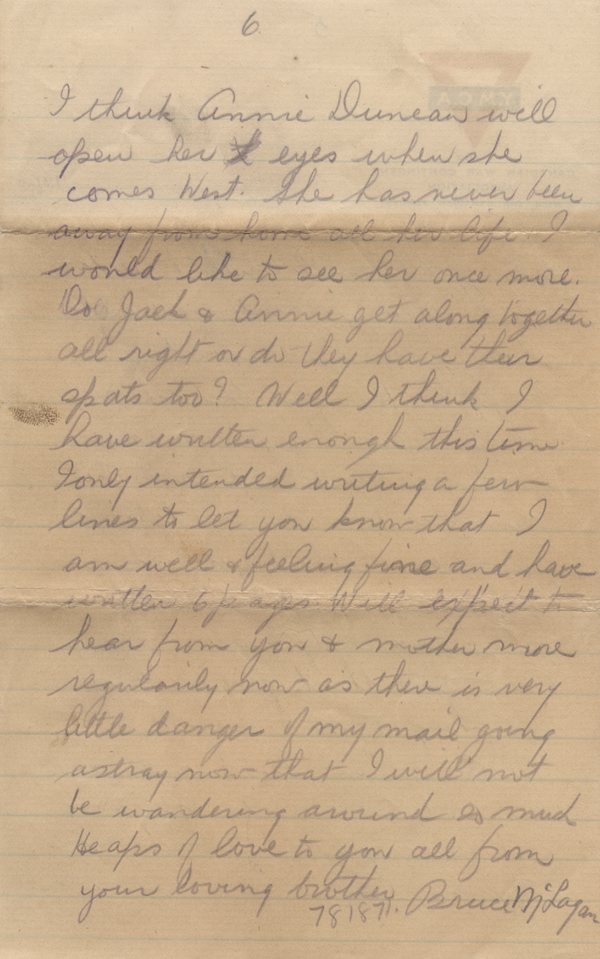 6
I think Annie Duncan will
open her eyes when she
comes West. She has never been
away from home all her life. I
would like to see her once more.
Do Jack & Annie get along together
all right or do they have their
spats too? Well I think I
have written enough this time
I only intended writing a few
lines to let you know that I
am well & feeling fine and have
written 6 pages Will expect to
hear from you & mother more
regularily now as there is very
little danger of my mail going
astray now that I will not
be wandering around so much
Heaps of love to you all from
your loving brother Bruce McLagan
781871.